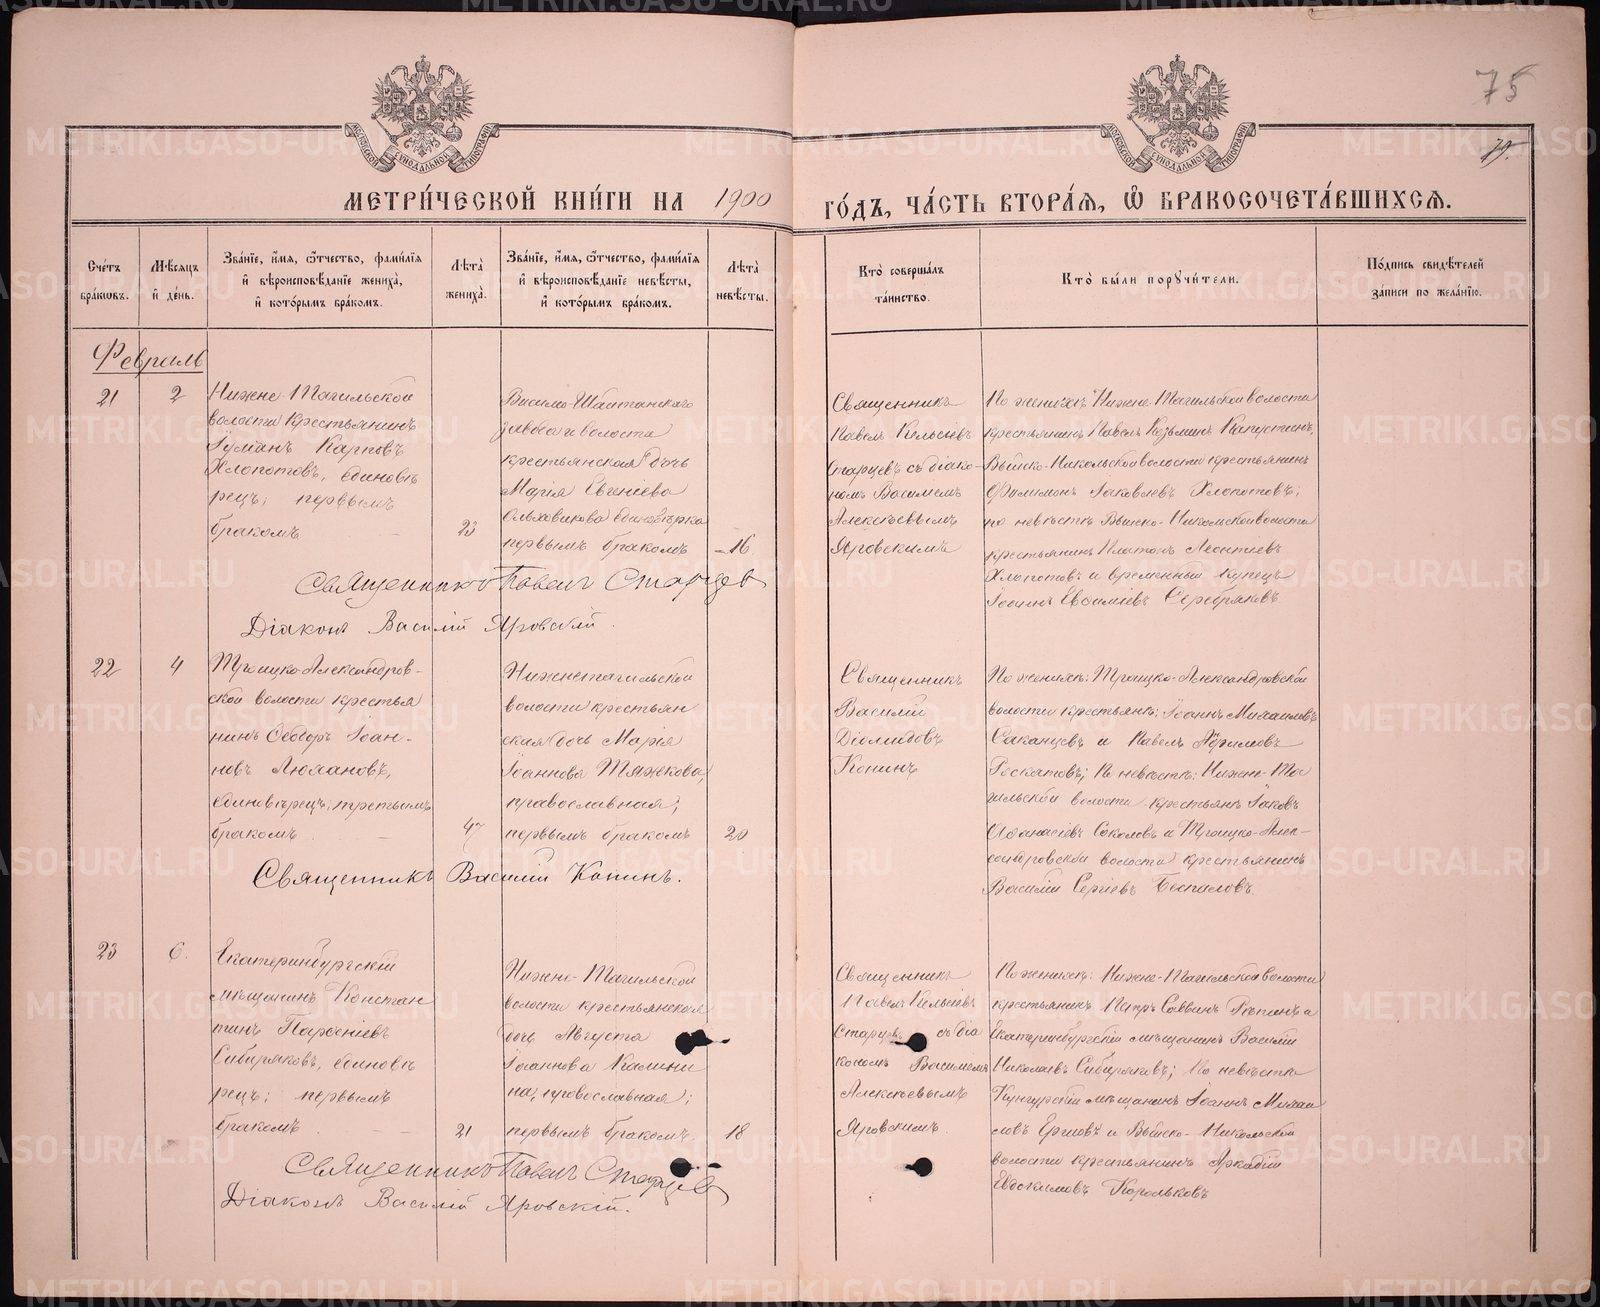 75
75.
МОСКОВСКОЙ СѴНОДАЛЬНОЙ ТИПОГРАФІИ
МОСКОВСКОЙ СѴНОДАЛЬНОЙ ТИПОГРАФІИ
МЕТРИ́ЧЕСКОЙ КНИ́ГИ НА 1900 ГО́ДЪ, ЧА́СТЬ ВТОРА́Ѧ, Ѽ БРАКОСОЧЕТА́ВШИХСѦ.
Сче́тъ бра́кѡвъ.
Мѣ́сѧцъ и҆ де́нь.
Зва́нїе, и҆́мѧ, ѻ҆́тчество, фами́лїѧ
и҆ вѣроисповѣ́данїе жениха̀,
и҆ кото́рымъ бра́комъ.
Лѣ́та жениха̀.
Зва́нїе, и҆́мѧ, ѻ҆́тчество, фами́лїѧ
и҆ вѣроисповѣ́данїе невѣ́сты,
и҆ кото́рымъ бра́комъ.
Лѣ́та невѣ́сты.
Кто̀ соверша́лъ
та́инство.
Кто̀ бы́ли порꙋчи́тели.
По́дпись свидѣ́телей
за́писи по жела́нїю.
Февраль
21
2
Нижне-Тагильской
волости крестьянинъ
Карповъ
Хлопотовъ, единовѣ
рецъ; первымъ
бракомъ
23
Висимо-Шайтанскаго
завода и волости
крестьянская дочь
Марія Евгеніева
Ольховикова единовѣрка
первымъ бракомъ
16.
Священникъ
Павелъ Кельсіевъ
Старцевъ съ діако-
номъ Василіемъ
Алексѣевымъ
Яровскимъ
По женихѣ: Нижне-Тагильской волости
крестьянинъ Павелъ Козьминъ Капустинъ,
Выйско-Никольской волости крестьянинъ
Филимонъ Іаковлевъ Хлопотовъ;
по невѣстѣ Выйско-Никольской волости
крестьянинъ Платонъ Леонтіевъ
Хлопотовъ и временный купецъ
Іоаннъ Евѳиміевъ Серебряковъ
Священникъ Павелъ Старцев
Діаконъ Василій Яровскій.
22
4
Троицко-Александров-
ской волости крестья
нинъ Ѳеодоръ Іоан-
новъ Люхановъ,
единовѣрецъ, третьимъ
бракомъ
47
Нижнетагильской
волости крестьян
ская дочь Марія
Іоаннова Тяжкова,
православная,
первымъ бракомъ
20
Священникъ
Василій
Діомидовъ
Конинъ
По женихѣ: Троицко-Александровской
волости крестьяне: Іоаннъ Михаиловъ
Саканцевъ и Павелъ
Роскатовъ; По невѣстѣ: Нижне-Та
гильской волости крестьян. Іаковъ
Аѳанасіевъ Соколовъ и Троицко-Алек-
сандровской волости крестьянинъ
Василій Сергіевъ Беспаловъ.
Священникъ Василій Конинъ.
23
6.
Екатеринбургскій
мѣщанинъ Констан
тинъ Парѳеніевъ
Сибиряковъ, единовѣ
рецъ; первымъ
бракомъ
21
Нижне-Тагильской
волости крестьянская
дочь Августа
Іоаннова Калини
на, православная;
первымъ бракомъ.
18
Священникъ
Павелъ Кельсіевъ
Старцевъ съ діа
кономъ Василіемъ
Алексѣевымъ
Яровскимъ.
По женихѣ: Нижне-Тагильской волости
крестьянинъ Петръ Саввинъ Рѣпинъ и
Екатеринбургскій мѣщанинъ Василій
Николаевъ Сибиряковъ; По невѣстѣ
Кунгурскій мѣщанинъ Іоаннъ Михаи
ловъ Ершовъ и Выйско-Никольской
волости крестьянинъ Аркадій
Евдокимовъ Корольковъ
Священникъ Павелъ Старцев
Діаконъ Василій Яровскій.
METRIKI.GASO-URAL.RU